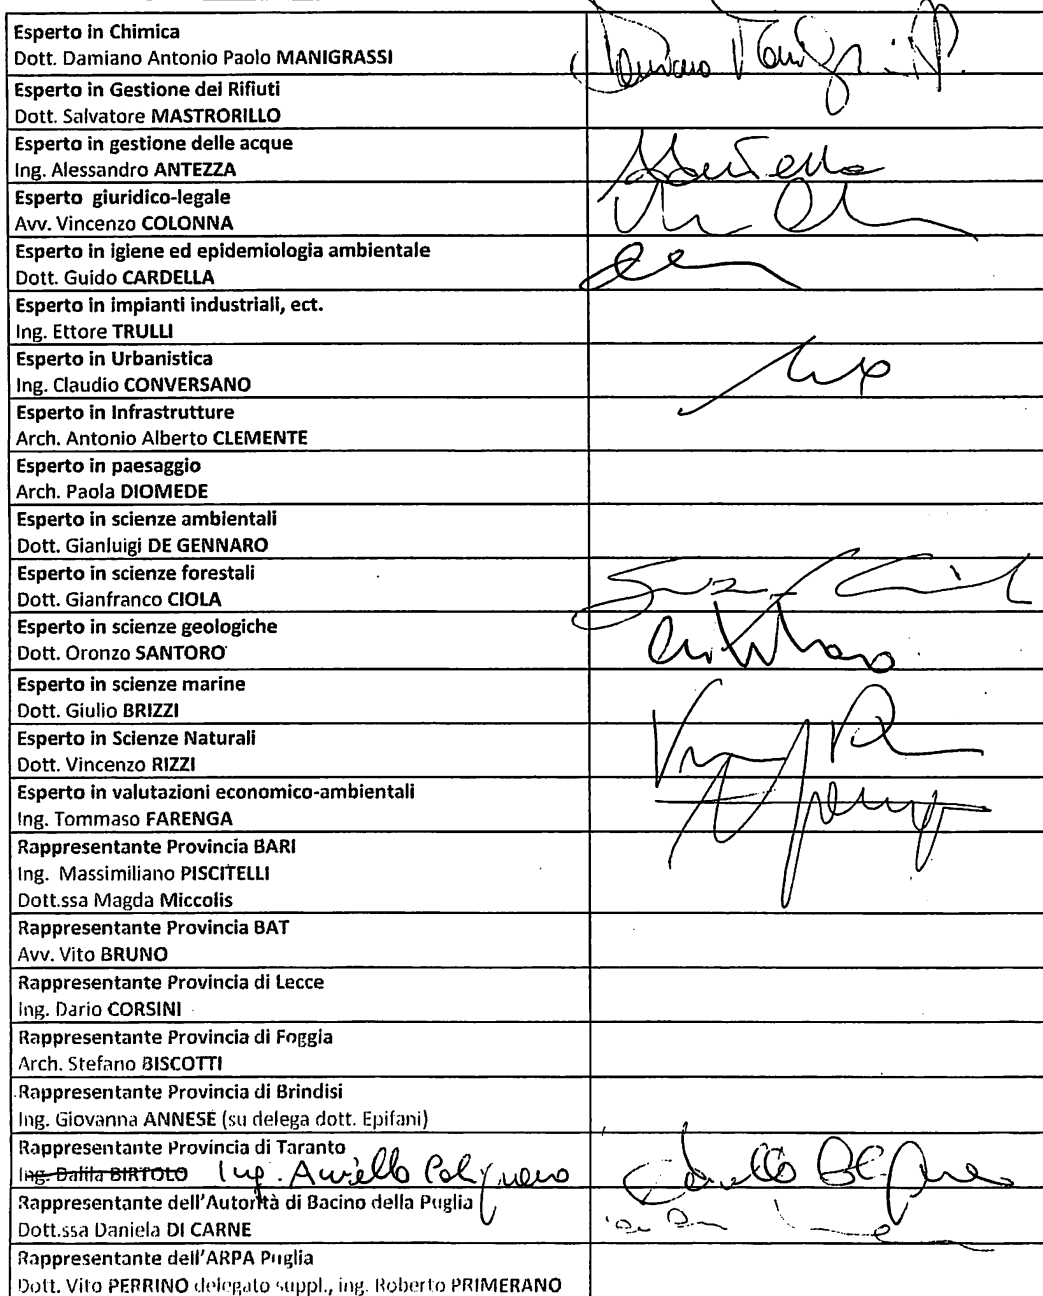 Esperto in Chimica
Dott. Damiano Antonio Paolo MANIGRASSI
Esperto in Gestione dei Rifiuti
Dott. Salvatore MASTRORILLO
Esperto in gestione delle acque
Ing. Alessandro ANTEZZA
Esperto giuridico-legale
Avv. Vincenzo COLONNA
Esperto in igiene ed epidemiologia ambientale
Dott. Guido CARDELLA
Esperto in impianti industriali, ect.
Ing. Ettore TRULLI
Esperto in Urbanistica
Ing. Claudio CONVERSANO
Esperto in Infrastrutture
Arch. Antonio Alberto CLEMENTE
Esperto in paesaggio
Arch. Paola DIOMEDE
Esperto in scienze ambientali
Dott. Gianluigi DE GENNARO
Esperto in scienze forestali
Dott. Gianfranco CIOLA
Esperto in scienze geologiche
Dott. Oronzo SANTORO
Esperto in scienze marine
Dott. Giulio BRIZZI
Esperto in Scienze Naturali
Dott. Vincenzo RIZZI
Esperto in valutazioni economico-ambientali
Ing. Tommaso FARENGA
Rappresentante Provincia BARI
Ing. Massimiliano PISCITELLI
Dott.ssa Magda Miccolis
Rappresentante Provincia BAT
Avv. Vito BRUNO
Rappresentante Provincia di Lecce
Ing. Dario CORSINI
Rappresentante Provincia di Foggia
Arch. Stefano BISCOTTI
Rappresentante Provincia di Brindisi
Ing. Giovanna ANNESE (su delega dott. Epifani)
Rappresentante Provincia di Taranto
Ing. Dalila BIRTOLO Ing. Aniello Polignano
Rappresentante dell'Autorità di Bacino della Puglia
Dott.ssa Daniela DI CARNE
Rappresentante dell'ARPA Puglia
Dott. Vito PERRINO delegato suppl., ing. Roberto PRIMERANO